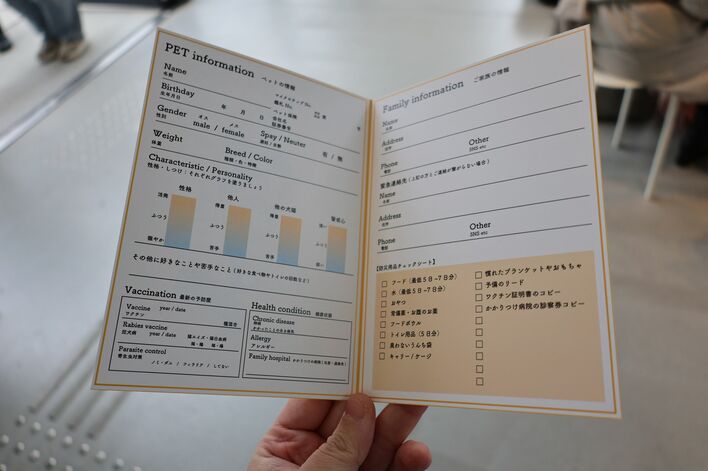 PET information ペットの情報
Name
名前
マイクロチップ No.
鑑札 No.
Birthday
生年月日
年 月 日
ペット保険
会社名
証券番号
Gender
性別
オス メス
male / female
Spay / Neuter
避妊 / 去勢
有 / 無
Weight
体重
Breed / Color
種類・色・特徴
Characteristic / Personality
性格・しつけ：それぞれグラフを塗りましょう
性格 他人 他の犬猫 警戒心
活発 得意 得意 強い
ふつう ふつう ふつう ふつう
穏やか 苦手 苦手 弱い
その他に好きなことや苦手なこと（好きな食べ物やトイレの回数など）
Vaccination 最新の予防歴
Vaccine year / date
ワクチン 種混合
Rabies vaccine year / date
狂犬病
Parasite control
寄生虫対策
ノミ・ダニ / フィラリア / してない
Health condition 健康状態
Chronic disease
持病
かかったことのある病気
Allergy
アレルギー
Family hospital かかりつけの病院
Family information ご家族の情報
Name
名前
Address
住所
Phone
電話
Other
SNS etc
緊急連絡先（上記の方とご連絡が繋がらない場合）
Name
名前
Address
住所
Phone
電話
Other
SNS etc
【防災用品チェックシート】
□ フード（最低5日~7日分）
□ 水（最低5日~7日分）
□ おやつ
□ 常備薬・お腹のお薬
□ フードボウル
□ トイレ用品（5日分）
□ 臭わないうんち袋
□ キャリー / ケージ
□ 慣れたブランケットやおもちゃ
□ 予備のリード
□ ワクチン証明書のコピー
□ かかりつけ病院の診察券コピー